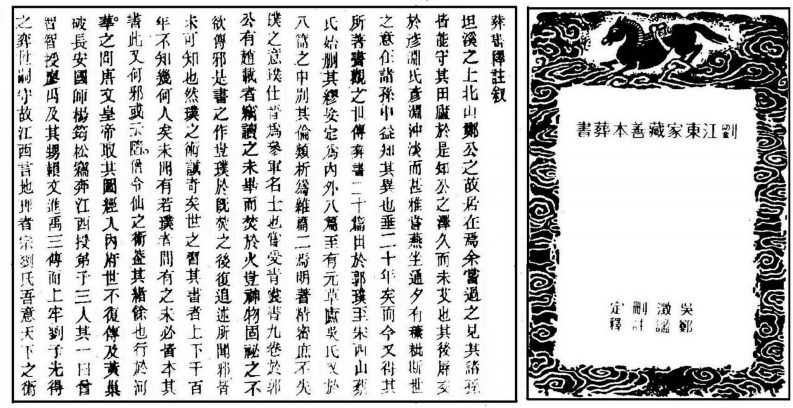 劉江東家藏善本葬書
吳澂刪定
鄭謐註釋
葬書釋註叙
坦溪之上北山鄭公之故居在焉余嘗過之見其諸孫
皆能守其田廬於是知公之澤久而未艾也其後屏交
於彥淵氏彥淵沖淡而甚雅嘗燕坐通夕有穅秕斯世
之意在諸孫中益知其異也垂二十年矣而今又得其
所著書觀之世傳葬書二十篇出於郭璞至宋西山蔡
氏始刪其繆妄定爲內外八篇至有元草廬吳氏又於
八篇之中別其倫類析爲雜篇二焉明著精密庶不失
璞之意璞仕晉爲參軍名士也嘗受青囊書九卷於郭
公有趙載者竊讀之未畢而焚於火豈神物固祕之不
欲傳邪是書之作豈璞於既焚之後復追述所聞邪皆
未可知也然璞之術誠奇矣世之習其書者上下千百
年不知幾何人矣未聞有若璞者間有之未必皆本其
書此又何邪或云隋僧令仙之術蓋其緒餘也行於河
華之間唐文皇帝取其圖經入內府世不復傳及黃巢
破長安國師楊筠松竊奔江西授弟子三人其一曰曾
智智授廖禹及其甥賴文進禹三傳而上牢劉子先得
之奕世嗣守故江西言地理者宗劉氏吾意天下之術